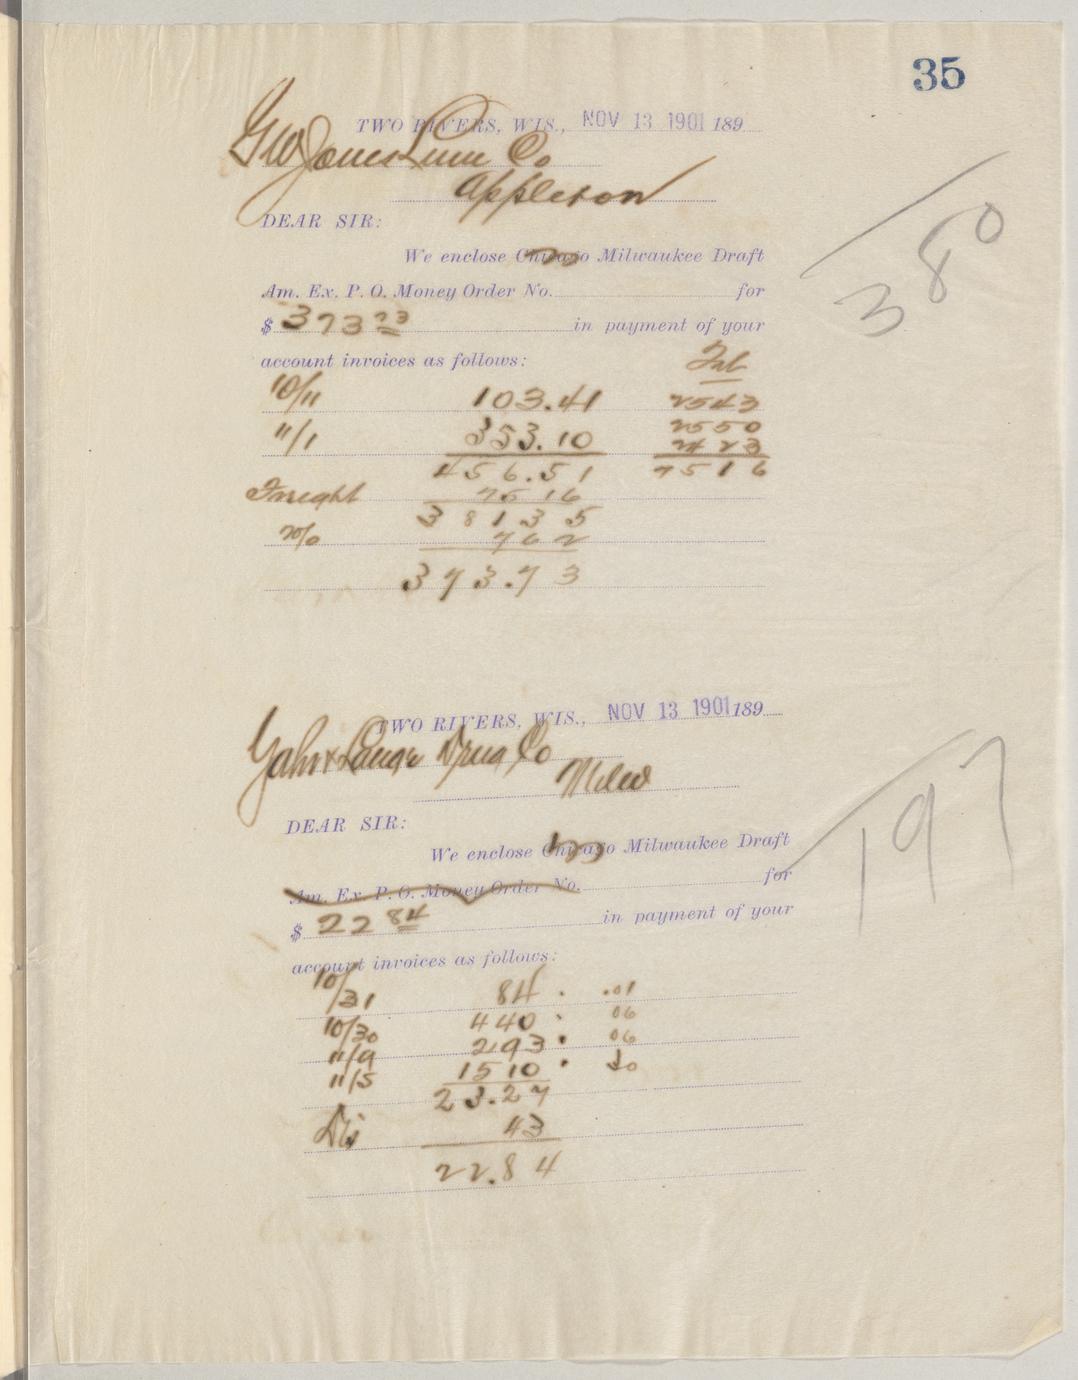 35
TWO RIVERS, WIS., NOV 13 1901 189
GW Jones Lum Co
Appleton
DEAR SIR:
We enclose Chicago Milwaukee Draft
Am. Ex. P. O. Money Order No. for
$ 373 73 in payment of your
account invoices as follows:
380
10/11 103.41 2543
11/1 353.10 2550
2423
456.51 7516
Freight 75 16
381 35
2% 762
373.73
TWO RIVERS, WIS., NOV 13 1901 189
Yahr & Lange Drug Co
Milw
DEAR SIR:
We enclose Chicago Milwaukee Draft
Am. Ex. P. O. Money Order No. for
$ 22 84 in payment of your
account invoices as follows:
197
10/31 84 .01
10/30 440 06
11/9 293 06
11/5 1510 30
23.27
Dis 43
22.84